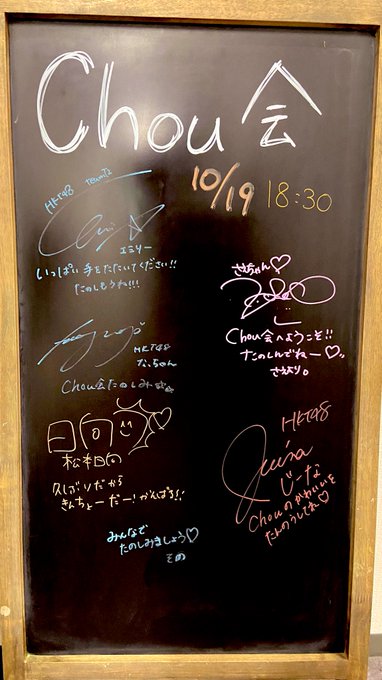 Chou会
10/19 18:30
HKT48 teamTⅡ
エミリー
いっぱい手をたたいてください!!
たのしもうね!!!
さえちゃん♡
Chou会へようこそ!!
たのしんでねー♡
さえより。
HKT48
なっちゃん
Chou会たのしみ☆☆
日向
松本日向
久しぶりだから
きんちょーだー!がんばる!!
HKT48
じーな
Chouのかわいいを
たんのうしてね♡
みんなで
たのしみましょう♡
その